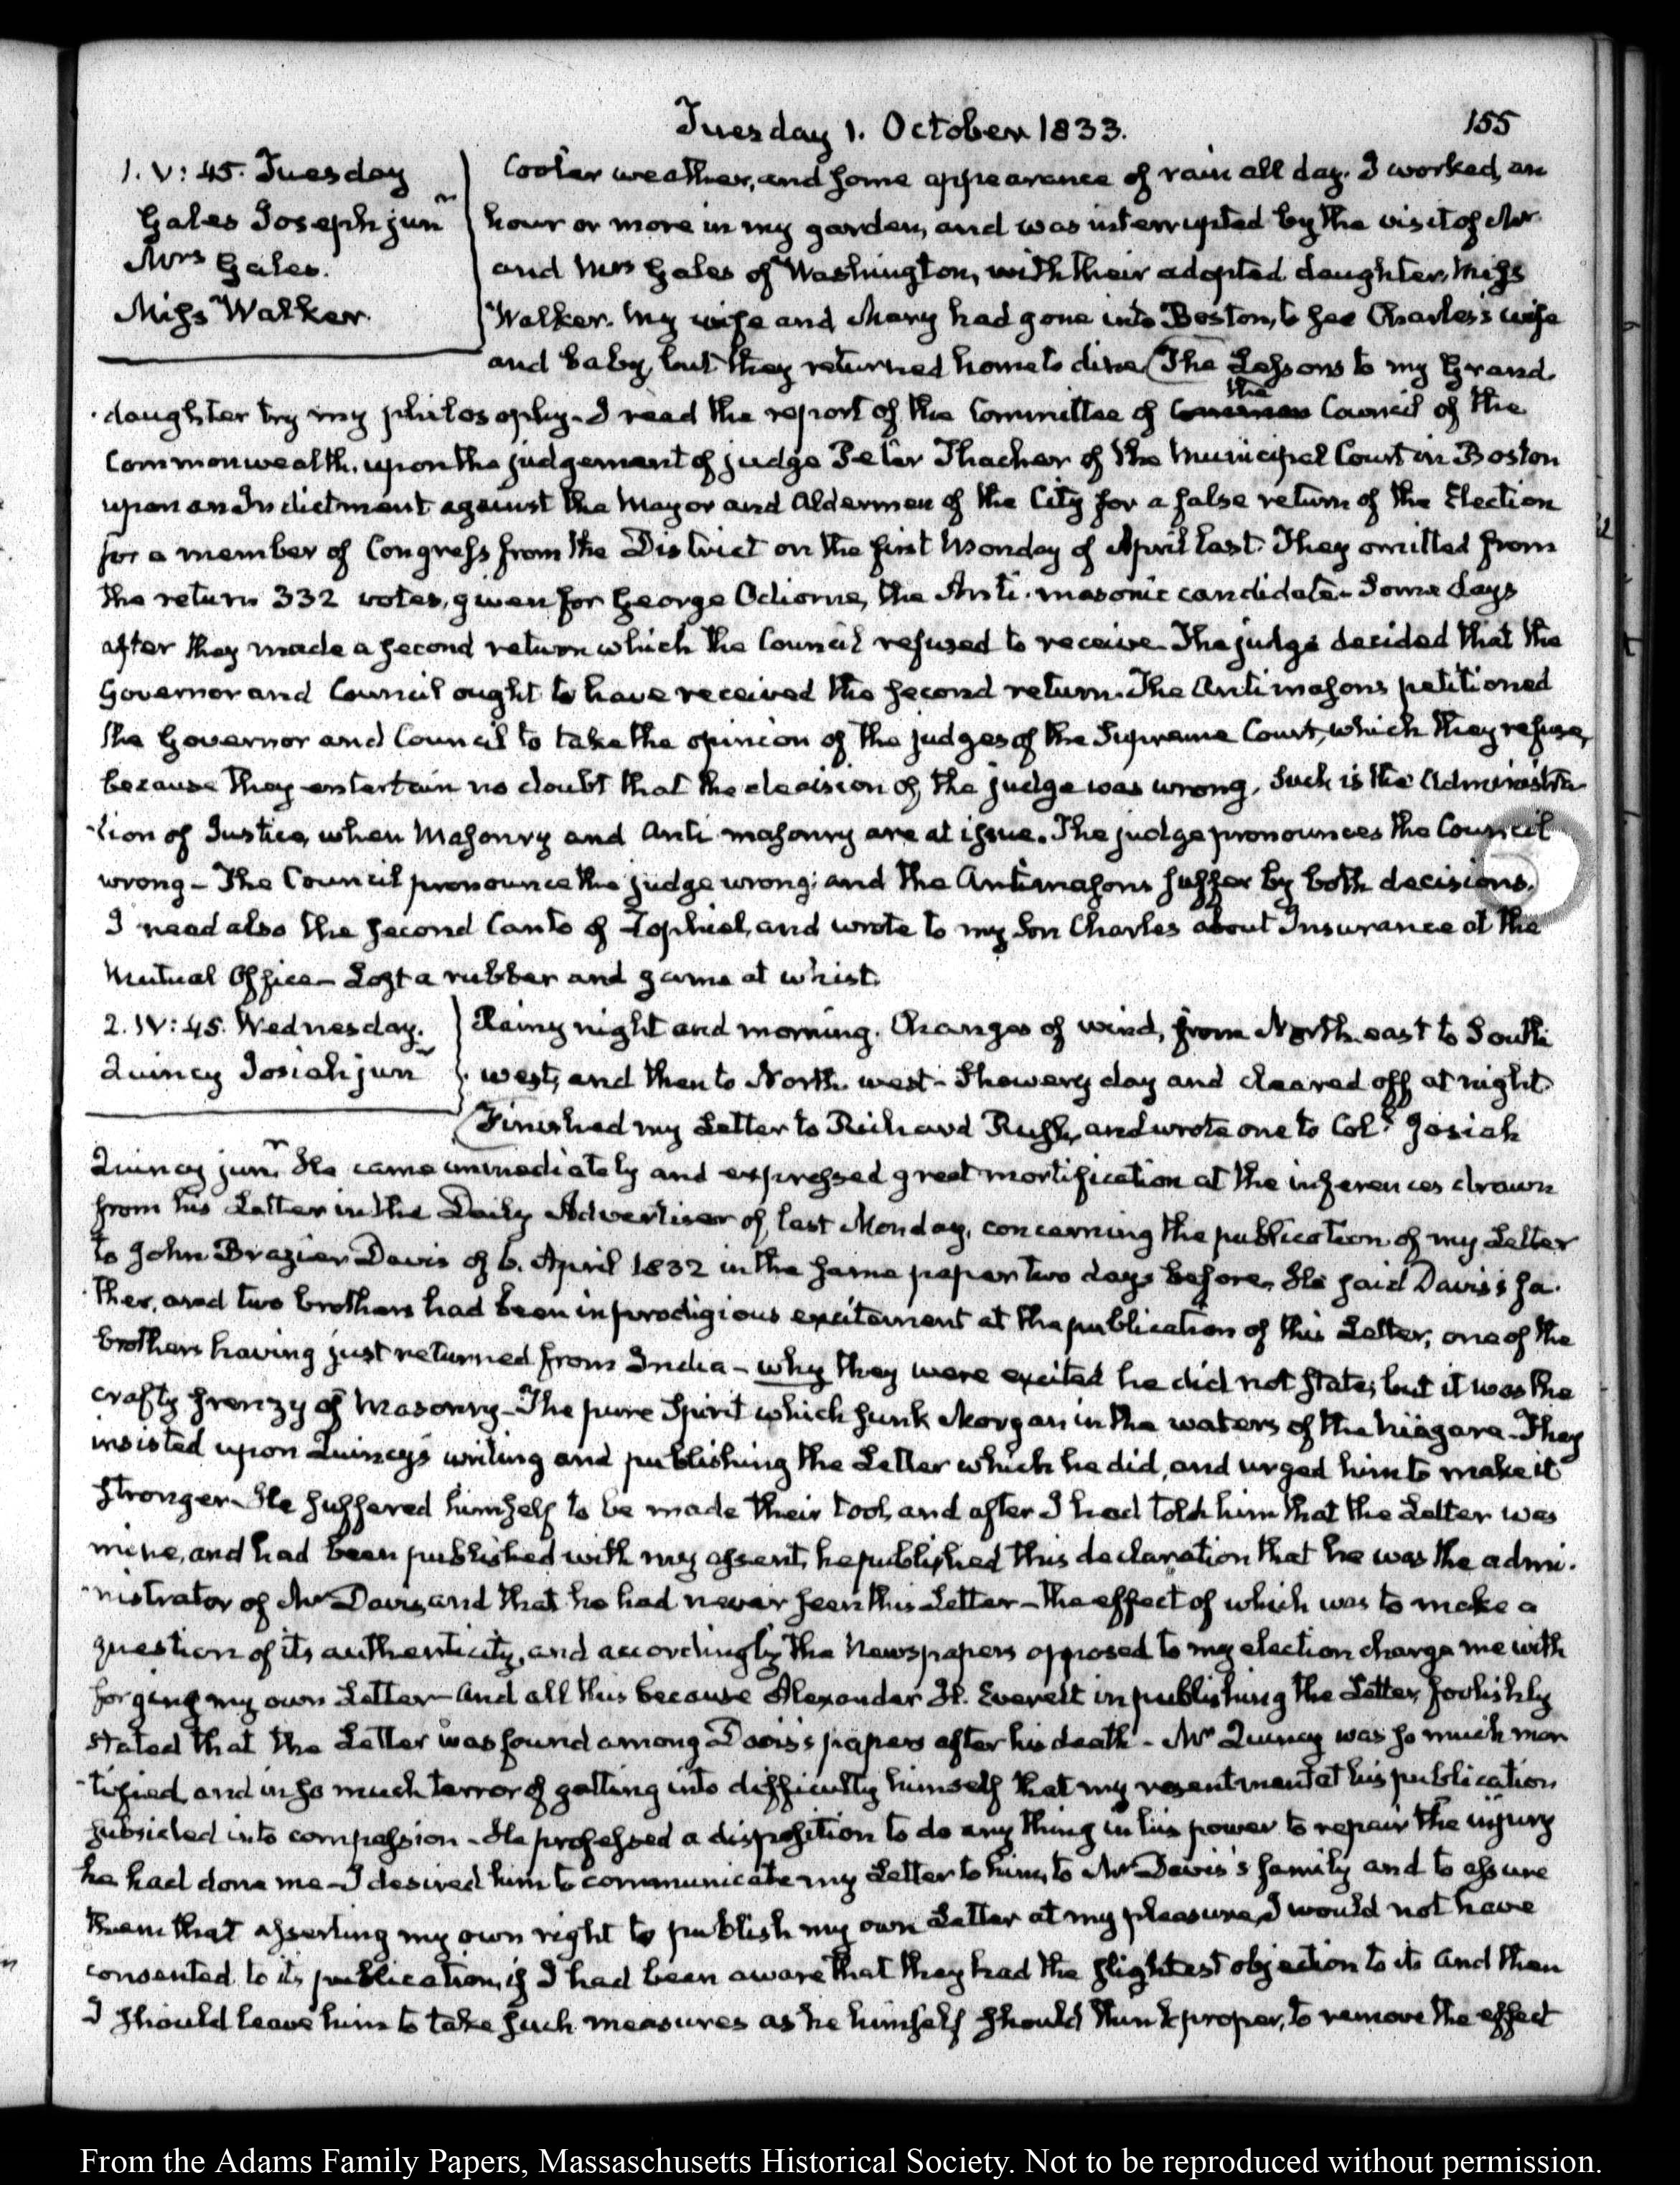 Tuesday 1. October 1833.
155
1. V: 45. Tuesday
Gales Joseph junr
Mrs Gales.
Miss Walker.
Cooler weather, and some appearance of rain all day. I worked, an
hour or more in my garden, and was interrupted by the visit of Mr
and Mrs Gales of Washington, with their adopted daughter, Miss
Walker. My wife and Mary had gone into Boston, to see Charles's wife
and baby, but they returned home to dine. The Lessons to my Grand-
daughter try my philosophy. I read the report of the Committee of the Council of the
Commonwealth, upon the judgement of judge Peter Thacher of the Municipal Court in Boston
upon an Indictment against the Mayor and Aldermen of the City for a false return of the Election
for a member of Congress from the District on the first Monday of April last. They omitted from
the return 332 votes, given for George Odiorne, the Anti-masonic candidate. Some days
after they made a second return which the Council refused to receive. The judge decided that the
Governor and Council ought to have received the second return. The Antimasons petitioned
the Governor and Council to take the opinion of the judges of the Supreme Court, which they refuse,
because they entertain no doubt that the decision of the judge was wrong. Such is the Administra-
-tion of Justice, when Masonry and Anti-masonry are at issue. The judge pronounces the Council
wrong - The Council pronounce the judge wrong; and the Antimasons suffer by both decisions.
I read also the second Canto of Zophiel, and wrote to my Son Charles about Insurance at the
Mutual Office - Lost a rubber and game at whist.
2. IV: 45. Wednesday.
Quincy Josiah junr
Rainy night and morning. Changes of wind, from North-east to South
west, and then to North-west - Showery day and cleared off at night.
Finished my Letter to Richard Rush, and wrote one to Coll. Josiah
Quincy junr. He came immediately and expressed great mortification at the inferences drawn
from his Letter in the Daily Advertiser of last Monday, concerning the publication of my Letter
to John Brazier Davis of 6. April 1832 in the same paper two days before. He said Davis's fa-
ther, and two brothers had been in prodigious excitement at the publication of this Letter, one of the
brothers having just returned from India - why they were excited he did not state; but it was the
crafty frenzy of Masonry - The pure Spirit which sunk Morgan in the waters of the Niagara - They
insisted upon Quincy's writing and publishing the Letter which he did, and urged him to make it
stronger - He suffered himself to be made their tool, and after I had told him that the Letter was
mine, and had been published with my assent, he published this declaration that he was the admi-
-nistrator of Mr Davis, and that he had never seen this Letter - the effect of which was to make a
question of its authenticity, and accordingly the Newspapers opposed to my election charge me with
forging my own Letter - And all this because Alexander H. Everett in publishing the Letter, foolishly
stated that the Letter was found among Davis's papers after his death - Mr Quincy was so much mor
-tified, and in so much terror of getting into difficulty himself that my resentment at his publication
subsided into compassion - He professed a disposition to do any thing in his power to repair the injury
he had done me - I desired him to communicate my Letter to him, to Mr Davis's family and to assure
them that asserting my own right to publish my own Letter at my pleasure, I would not have
consented to its publication, if I had been aware that they had the slightest objection to it. And then
I should leave him to take such measures as he himself should think proper, to remove the effect
From the Adams Family Papers, Massachusetts Historical Society. Not to be reproduced without permission.